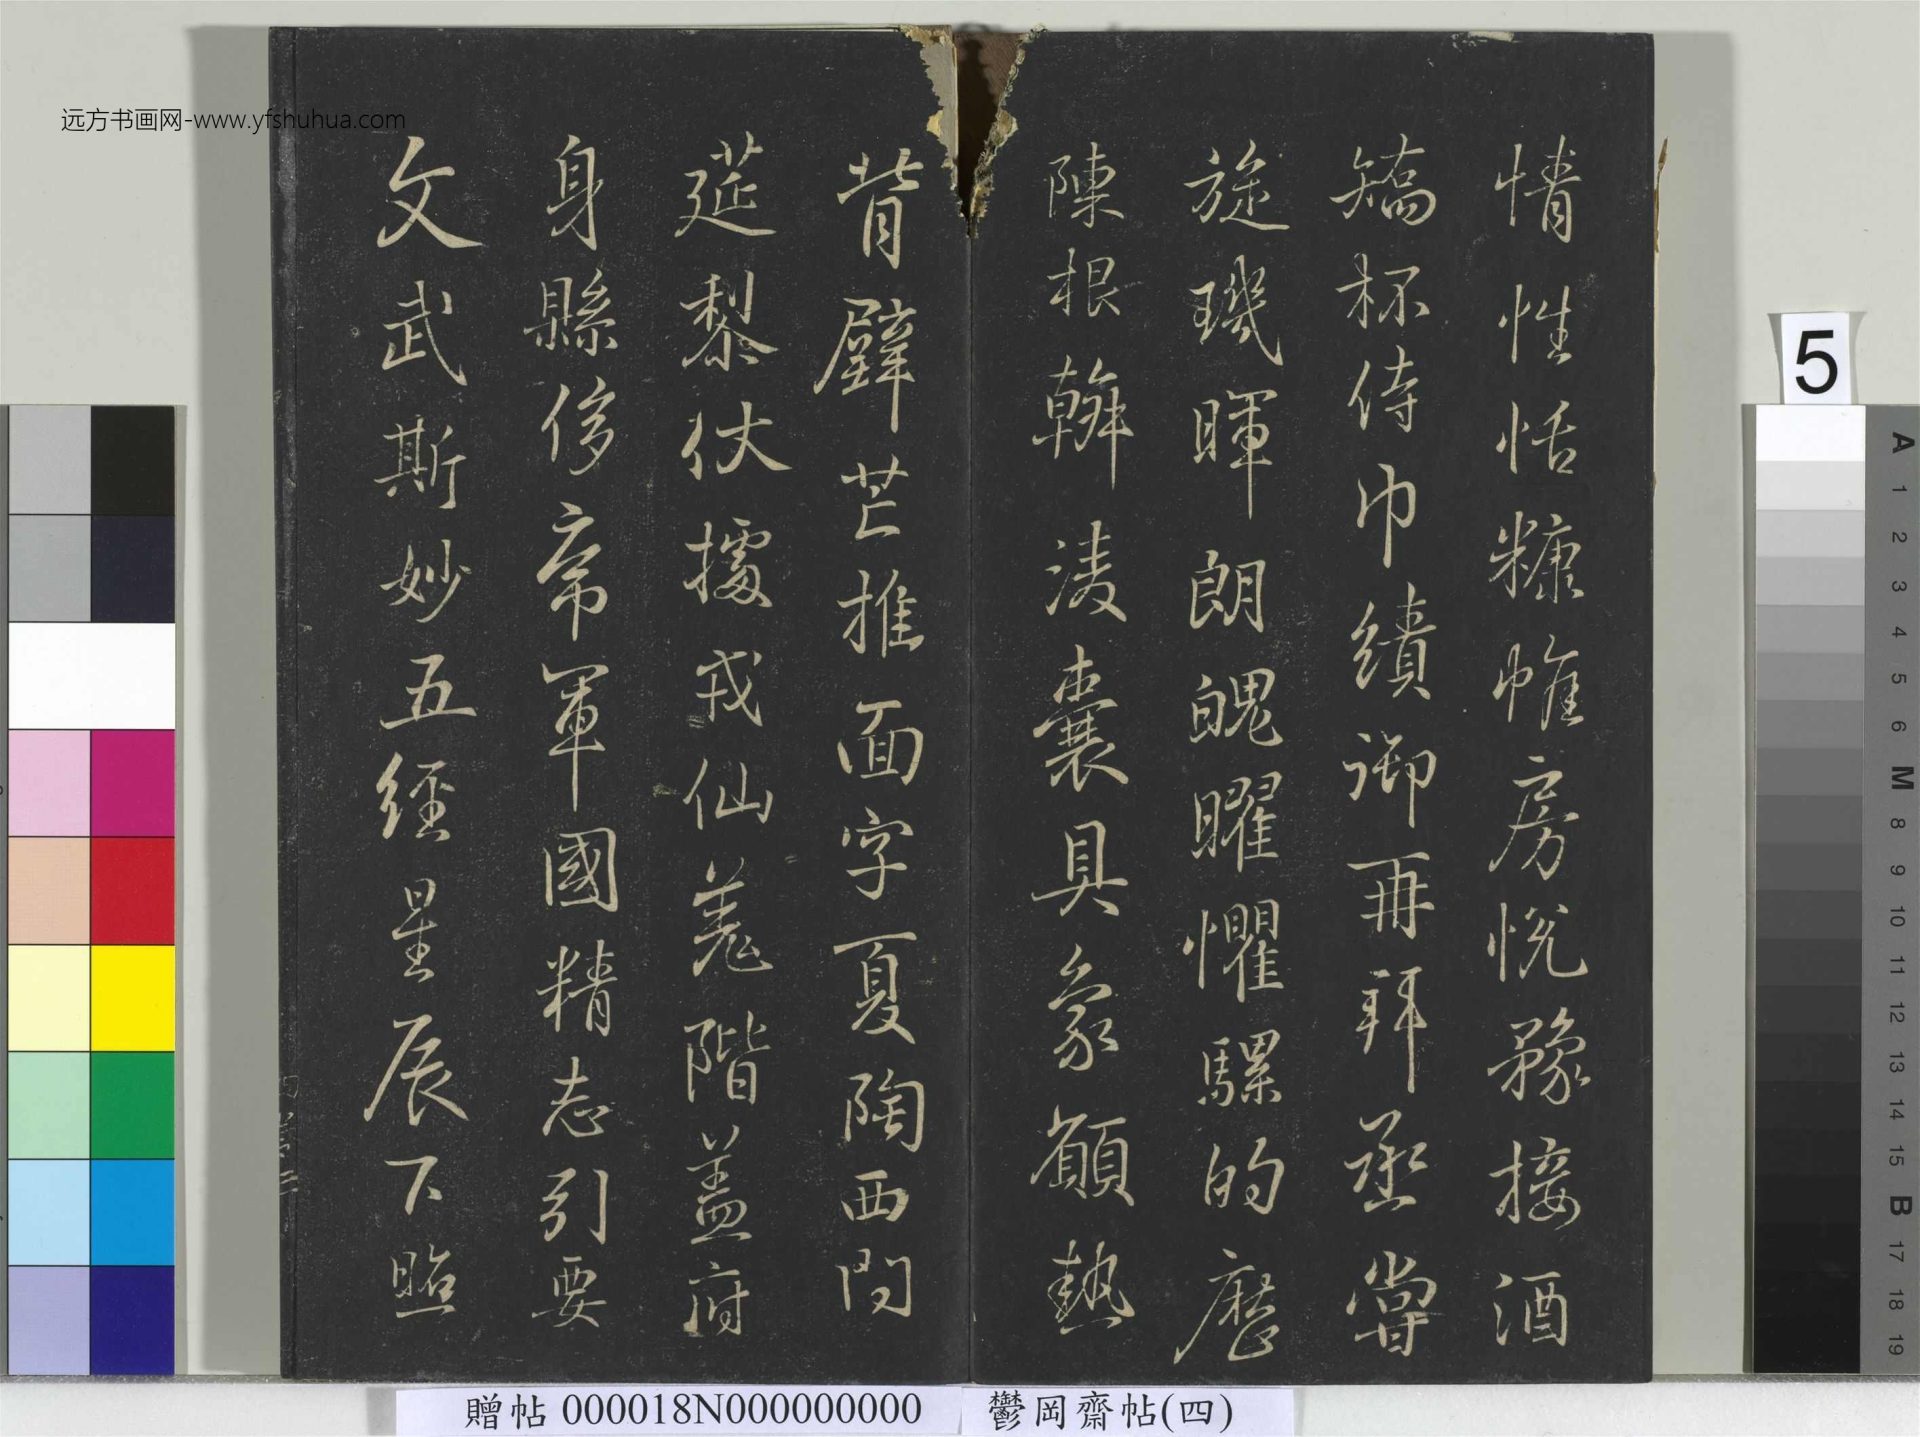 情性恬糠帷房悅豫接酒
矯杯侍巾績御再拜丞嘗
旋璣暉朗魄曜懼騾的歷
陳根幹淩囊具象顧熱
背璧芒推面字夏陶西問
莚黎伏據戎仙羗階蓋府
身縣侈帝軍國精志引要
文武斯妙五經星辰下照
远方书画网-www.yfshuhua.com
5
A
1
2
3
4
5
6
M
8
9
10
11
12
13
14
15
B
17
18
19
贈帖 000018N000000000
鬱岡齋帖(四)